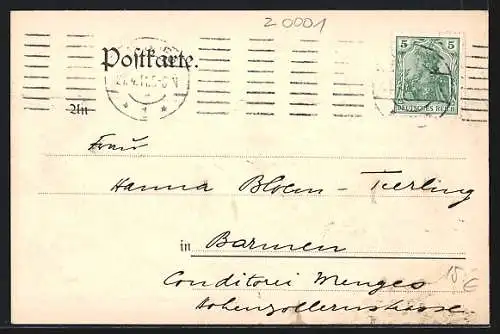 20001
Postkarte.
5 5
DEUTSCHES REICH
An
Frau
Hanna Bloem-Teerling
in Barmen
Conditorei Menges
Hohenzollernstrasse
15 €